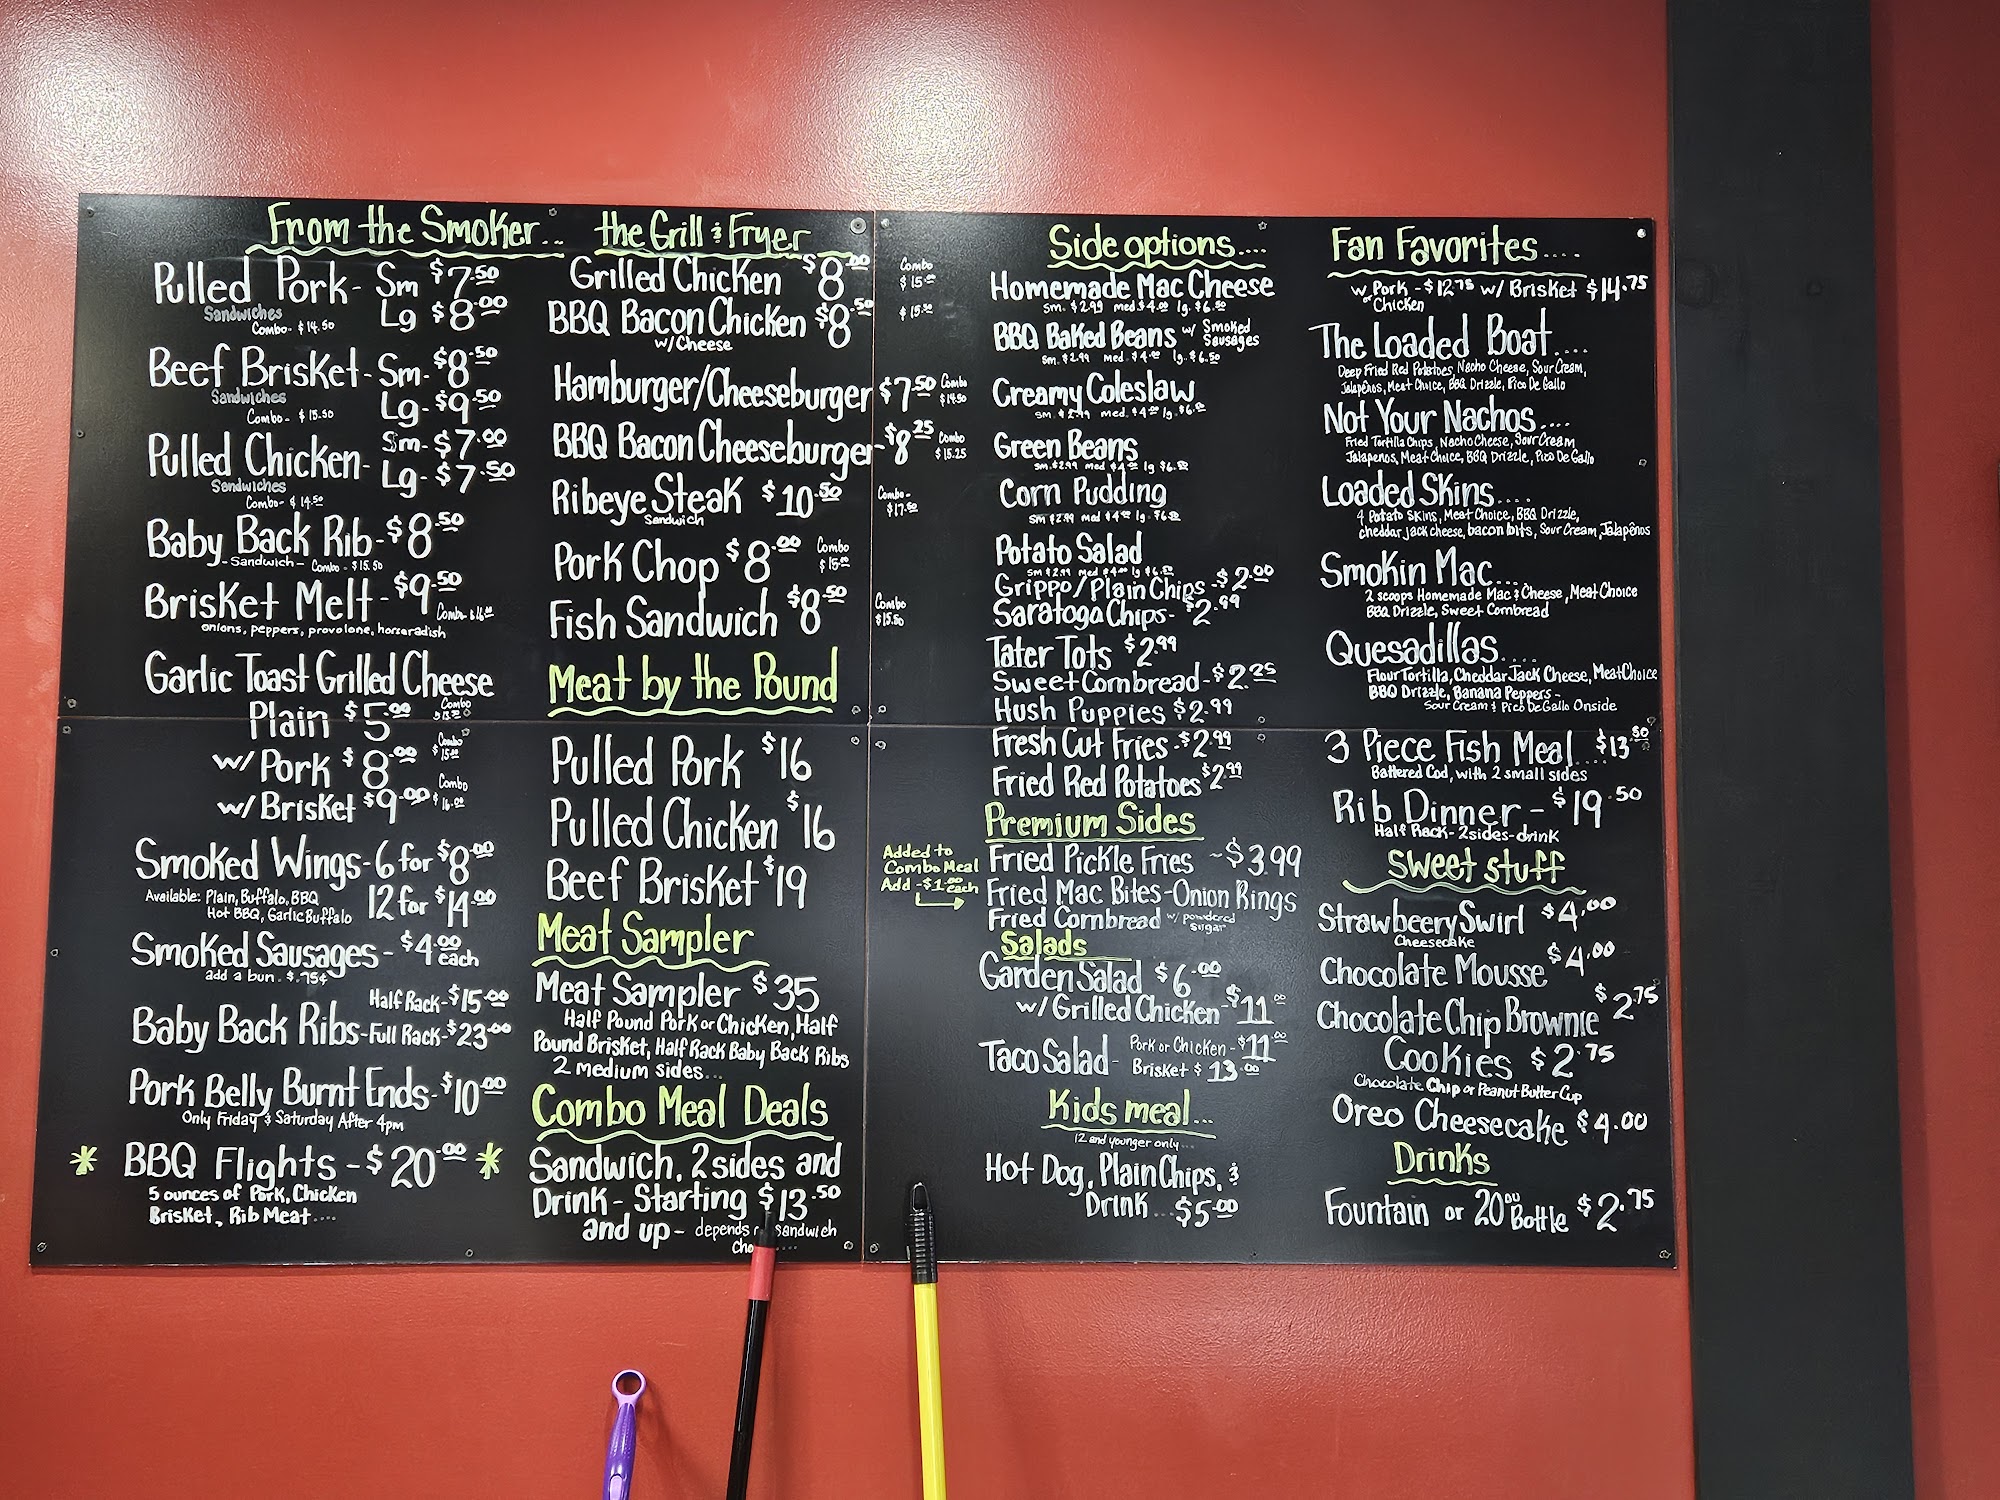 From the Smoker...
Pulled Pork - Sm $7.50
Sandwiches Lg $8.00
Combo - $14.50
Beef Brisket - Sm - $8.50
Sandwiches Lg - $9.50
Combo - $15.50
Pulled Chicken - Sm - $7.00
Sandwiches Lg - $7.50
Combo - $14.50
Baby Back Rib - $8.50
- Sandwich - Combo - $15.50
Brisket Melt - $9.50
Combo $16.00
onions, peppers, provolone, horseradish
Garlic Toast Grilled Cheese
Plain $5.00 Combo
w/ Pork $8.00 Combo $15.00
w/ Brisket $9.00 Combo $16.00
Smoked Wings - 6 for $8.00
Available: Plain, Buffalo, BBQ 12 for $14.00
Hot BBQ, Garlic Buffalo
Smoked Sausages - $4.00 each
add a bun . $.75¢
Half Rack - $15.00
Baby Back Ribs - Full Rack - $23.00
Pork Belly Burnt Ends - $10.00
Only Friday & Saturday After 4pm
* BBQ Flights - $20.00 *
5 ounces of Pork, Chicken
Brisket, Rib Meat....
the Grill & Fryer
Grilled Chicken $8.00 Combo $15.00
BBQ Bacon Chicken $8.50 $15.50
w/ Cheese
Hamburger/Cheeseburger $7.50 Combo $14.50
BBQ Bacon Cheeseburger - $8.25 Combo $15.25
Ribeye Steak $10.50 Combo - $17.50
Sandwich
Pork Chop $8.00 Combo $15.00
Fish Sandwich $8.50 Combo $15.50
Meat by the Pound
Pulled Pork $16
Pulled Chicken $16
Beef Brisket $19
Meat Sampler
Meat Sampler $35
Half Pound Pork or Chicken, Half
Pound Brisket, Half Rack Baby Back Ribs
2 medium sides...
Combo Meal Deals
Sandwich, 2 sides and
Drink - Starting $13.50
and up - depends sandwich
Side options....
Homemade Mac Cheese
sm. $2.99 med $4.00 lg. $6.50
BBQ Baked Beans w/ Smoked Sausages
sm. $2.99 med. $4.00 lg. $6.50
Creamy Coleslaw
sm. $2.99 med. $4.00 lg. $6.50
Green Beans
sm. $2.99 med $4.00 lg $6.50
Corn Pudding
sm $2.99 med $4.00 lg. $6.50
Potato Salad
sm $2.99 med $4.00 lg $6.50
Grippo/Plain Chips - $2.00
Saratoga Chips - $2.99
Tater Tots $2.99
Sweet Cornbread - $2.25
Hush Puppies $2.99
Fresh Cut Fries - $2.99
Fried Red Potatoes $2.99
Premium Sides
Added to
Combo Meal
Add - $1.00 each
Fried Pickle Fries ~ $3.99
Fried Mac Bites - Onion Rings
Fried Cornbread w/ powdered sugar
Salads
Garden Salad $6.00
w/ Grilled Chicken - $11.00
Taco Salad - Pork or Chicken - $11.00
Brisket $13.00
Kids meal...
12 and younger only...
Hot Dog, Plain Chips, &
Drink ... $5.00
Fan Favorites....
w/ Pork or Chicken - $12.75 w/ Brisket $14.75
The Loaded Boat....
Deep Fried Red Potatoes, Nacho Cheese, Sour Cream,
Jalapeños, Meat Choice, BBQ Drizzle, Pico De Gallo
Not Your Nachos....
Fried Tortilla Chips, Nacho Cheese, Sour Cream
Jalapenos, Meat Choice, BBQ Drizzle, Pico De Gallo
Loaded Skins....
4 Potato Skins, Meat Choice, BBQ Drizzle,
cheddar jack cheese, bacon bits, Sour Cream, Jalapeños
Smokin Mac....
2 scoops Homemade Mac & Cheese, Meat Choice
BBQ Drizzle, Sweet Cornbread
Quesadillas....
Flour Tortilla, Cheddar Jack Cheese, Meat Choice
BBQ Drizzle, Banana Peppers -
Sour Cream & Pico De Gallo Onside
3 Piece Fish Meal.... $13.50
Battered Cod, with 2 small sides
Rib Dinner - $19.50
Half Rack - 2 sides - drink
Sweet Stuff
Strawbeery Swirl $4.00
Cheesecake
Chocolate Mousse $4.00
Chocolate Chip Brownie $2.75
Cookies $2.75
Chocolate Chip or Peanut Butter Cup
Oreo Cheesecake $4.00
Drinks
Fountain or 20 ou Bottle $2.75